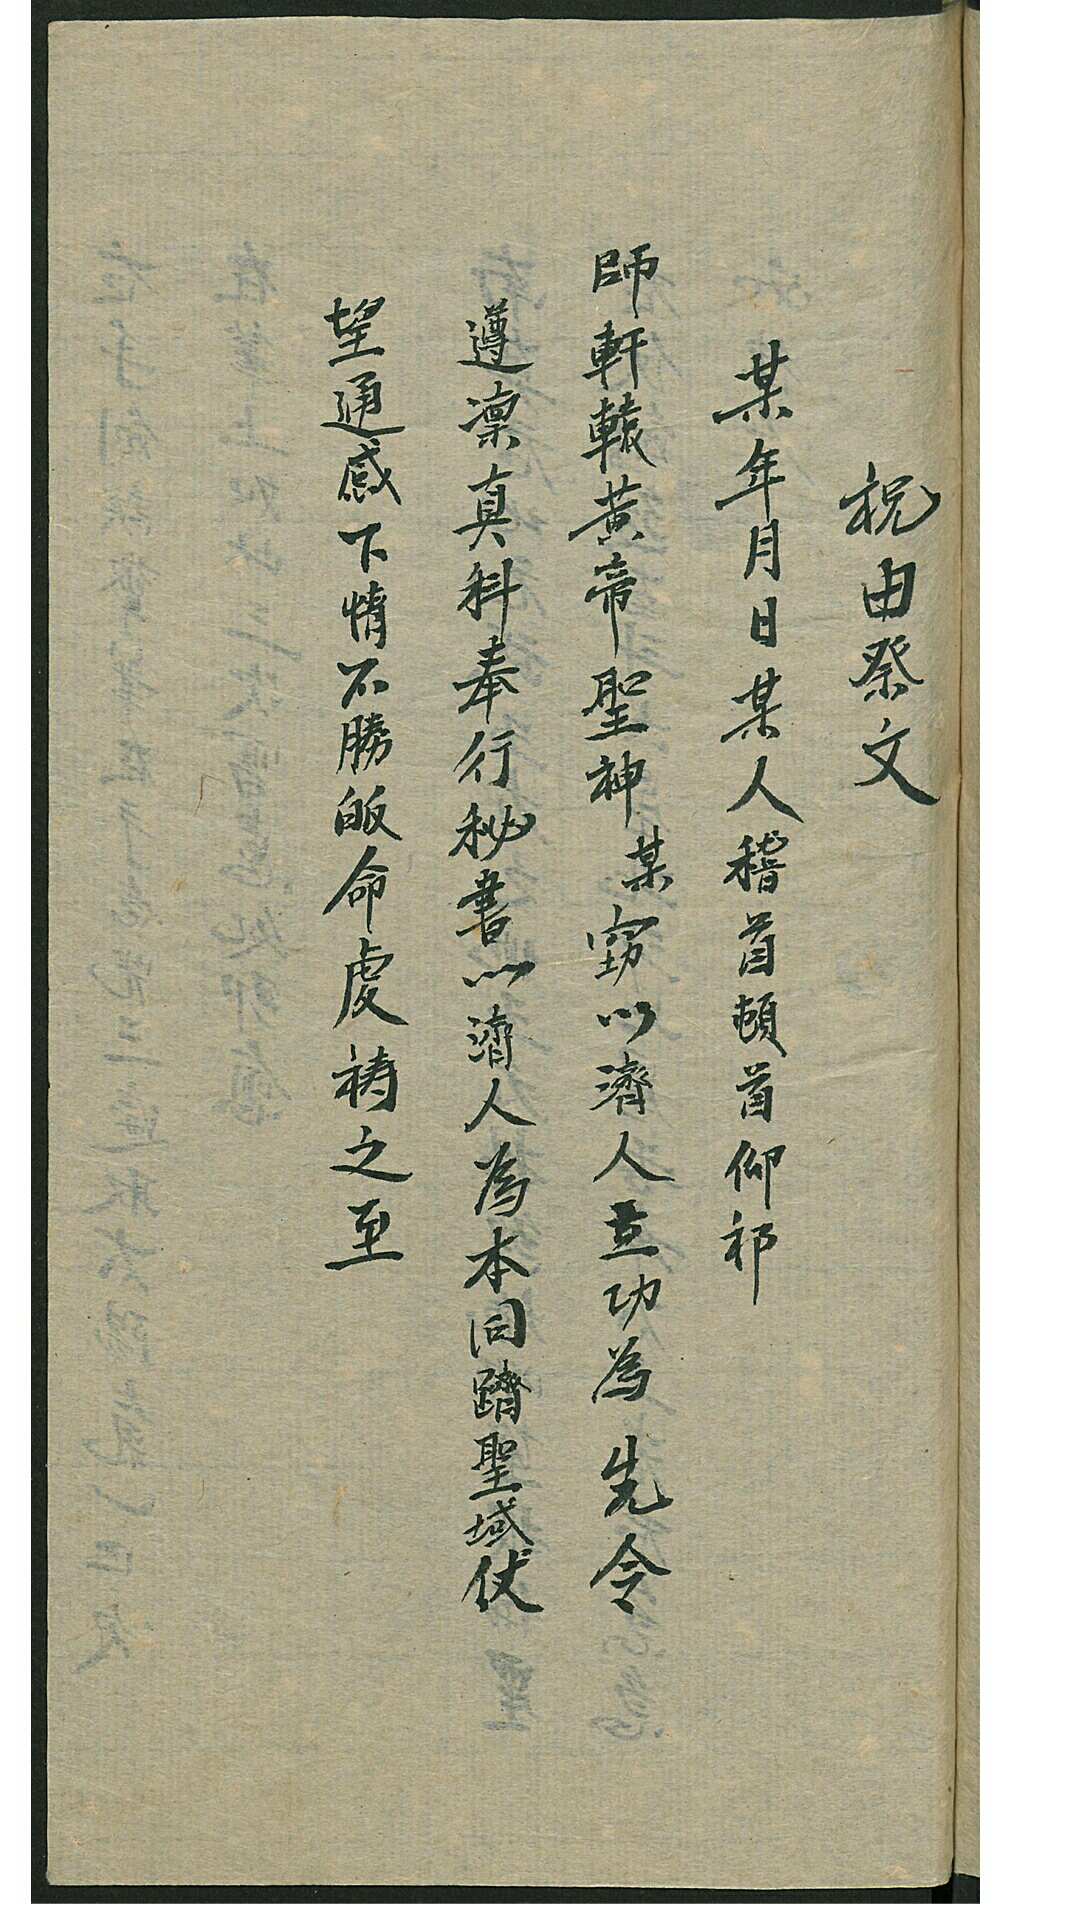 祝由祭文
某年月日某人稽首頓首仰祁
師軒轅黃帝聖神某竊以濟人立功為先今
遵凛真科奉行秘書以濟人為本同躋聖域伏
望通感下情不勝皈命虔禱之至